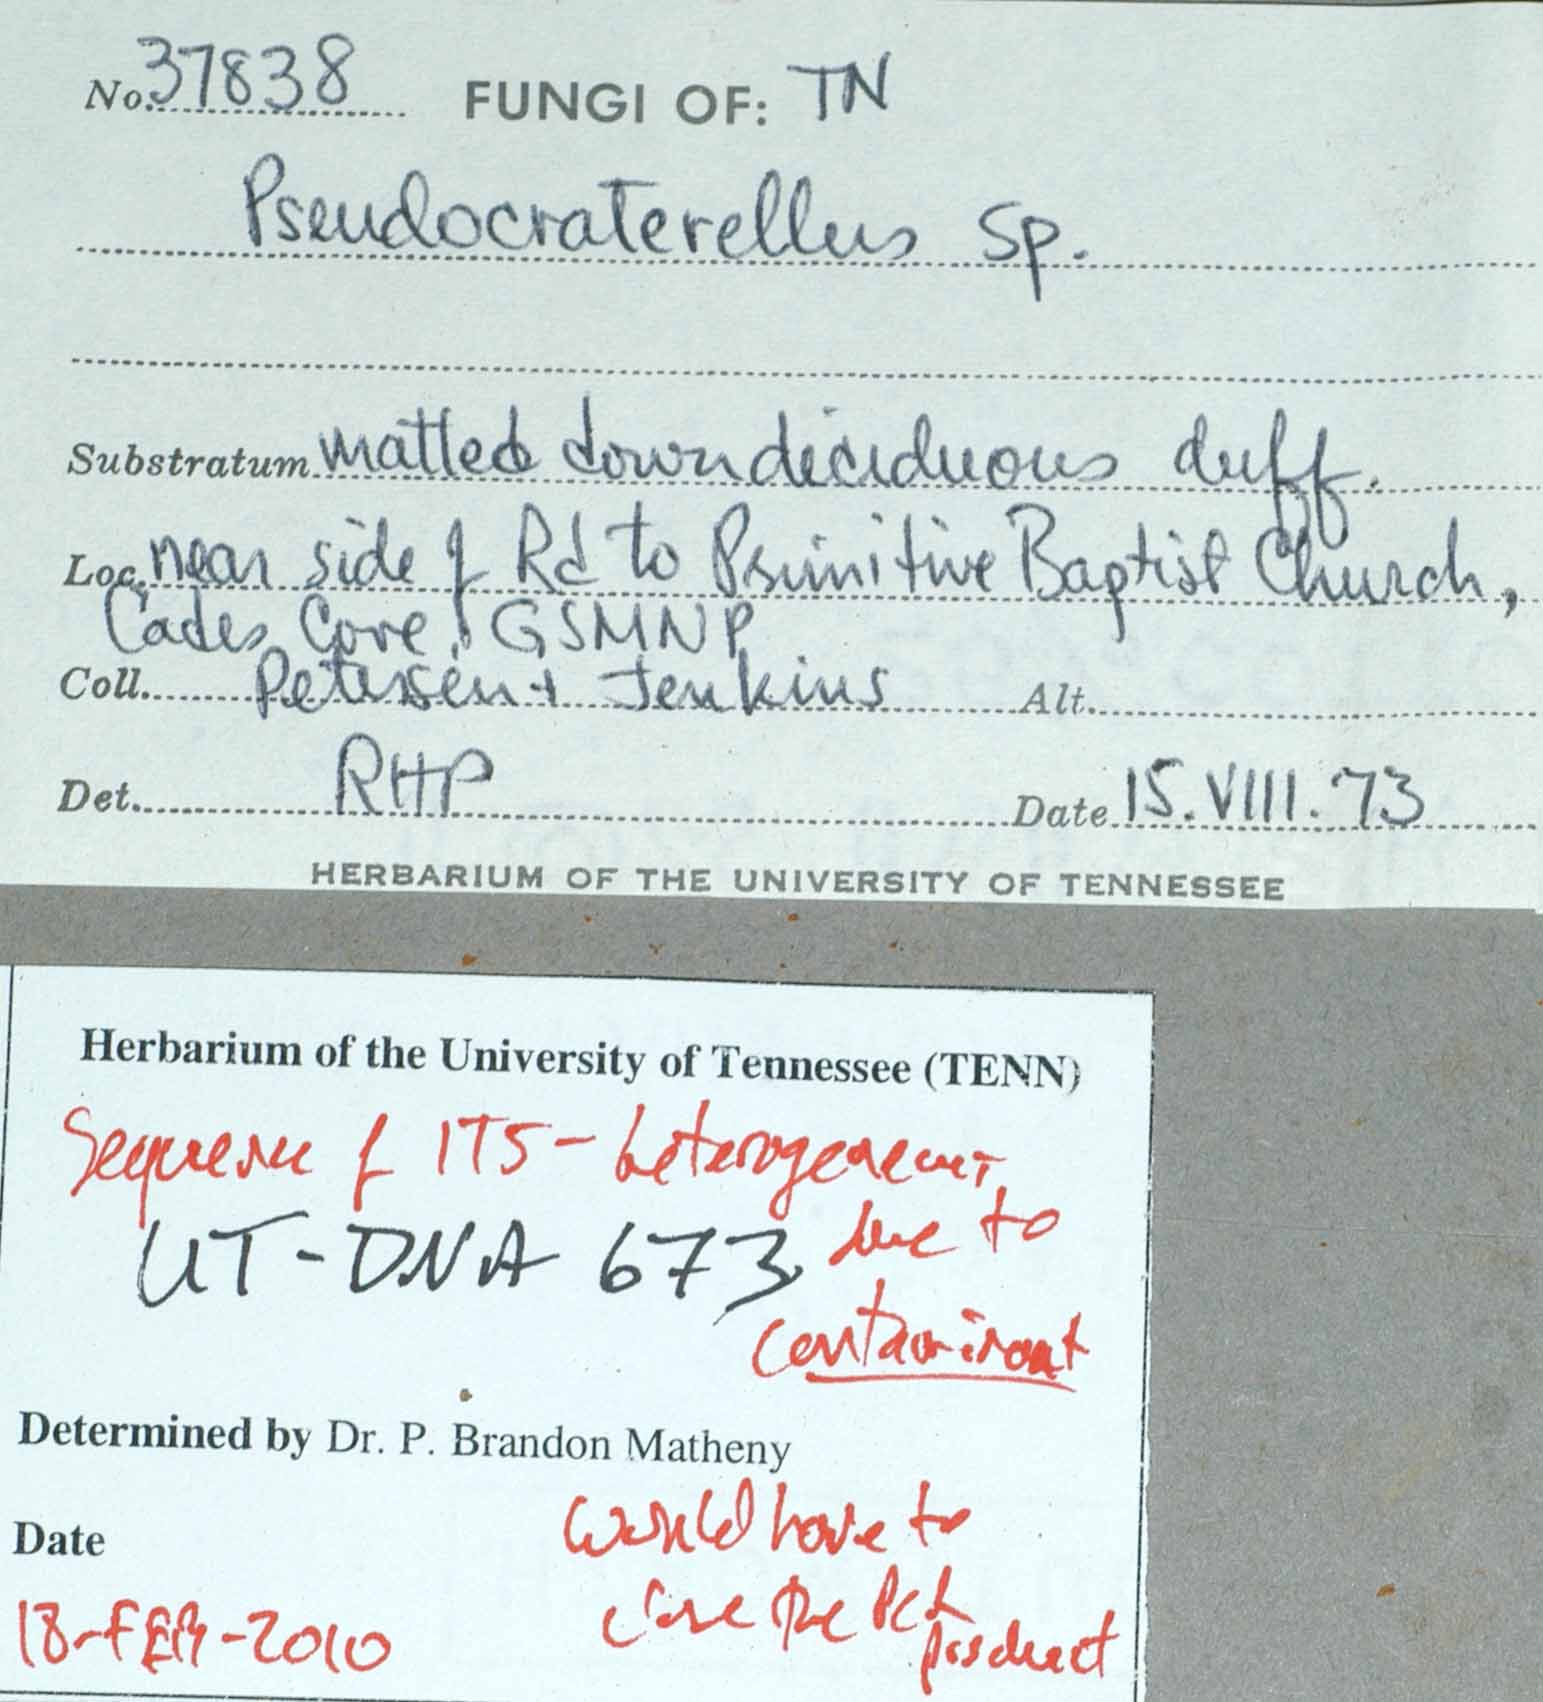 No. 37838 FUNGI OF: TN
Pseudocraterellus sp.
Substratum matted down deciduous duff.
Loc. near side of Rd to Primitive Baptist Church,
Cades Cove, GSMNP
Coll. Petersen + Jenkins Alt.
Det. RHP Date 15.VIII.73
HERBARIUM OF THE UNIVERSITY OF TENNESSEE
Herbarium of the University of Tennessee (TENN)
Sequence of ITS - heterogeneous
UT-DNA 673 due to
contaminant
Determined by Dr. P. Brandon Matheny
would have to
Date
clone the PCR
18-FEB-2010
product